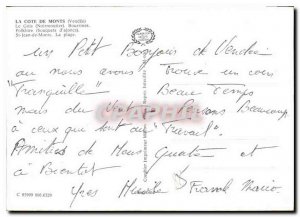 LA COTE DE MONTS (Vendée)
Le Gois (Noirmoutier). Bourrines.
Folklore (bouquets d'ajoncs).
St-Jean-de-Monts. La plage.
Un Petit Bonjour de Vendée
ou nous avons Trouvé un coin
"Tranquille" Beau Temps
mais du Vent Pensons Beaucoup
à ceux qui sont au "Travail"
Amitiés de Nous Quatre et
à Bientôt
Yves Franck Mario